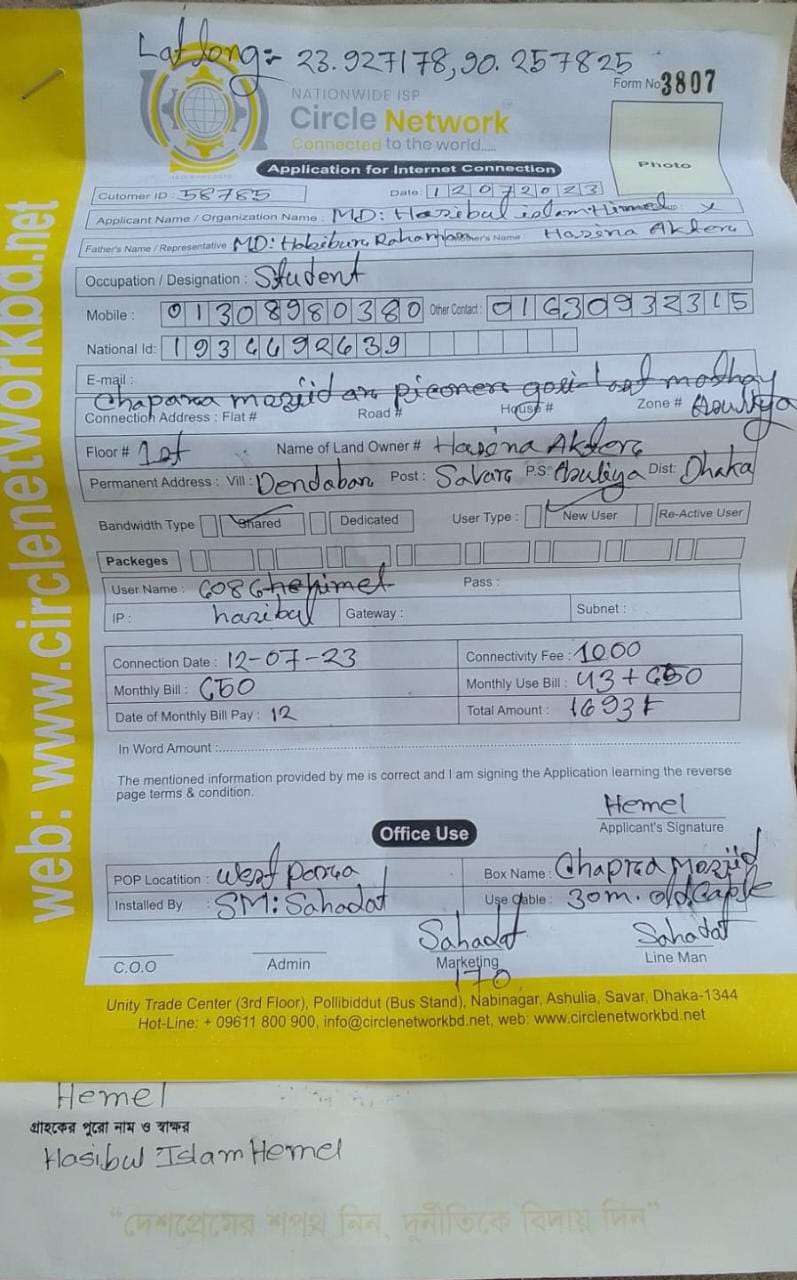 Lat long:- 23.927178,90.257825
NATIONWIDE ISP
Form No 3807
Circle Network
Connected to the world.....
Application for Internet Connection
Photo
Cutomer ID : 58785 Date: 12072023
Applicant Name / Organization Name : MD: Hasibul islam Himel
Father's Name / Representative MD: Habibur Rahaman Name : Hasina Akter
Occupation / Designation : Student
Mobile : 01308980380 Other Contact : 01630932315
National Id: 1934692639
E-mail :
Chapra masjid
Connection Address : Flat # Road # House # Zone # Asuliya
Floor # 1st Name of Land Owner # Hasina Akter
Permanent Address : Vill : Dendabar Post : Savar P.S: Asuliya Dist: Dhaka
Bandwidth Type Shared Dedicated User Type : New User Re-Active User
Packeges
User Name : Pass :
IP : hasibul Gateway : Subnet :
Connection Date : 12-07-23 Connectivity Fee : 1000
Monthly Bill : 650 Monthly Use Bill : 43+650
Date of Monthly Bill Pay : 12 Total Amount : 1693
In Word Amount :
The mentioned information provided by me is correct and I am signing the Application learning the reverse
page terms & condition.
Hemel
Applicant's Signature
Office Use
POP Locatition : West Box Name : Chapra Mosjid
Installed By : SM: Sahadat Use Cable : 30m. old
Sahadat Sahadat
C.O.O Admin Marketing Line Man
170
Unity Trade Center (3rd Floor), Pollibiddut (Bus Stand), Nabinagar, Ashulia, Savar, Dhaka-1344
Hot-Line: + 09611 800 900, info@circlenetworkbd.net, web: www.circlenetworkbd.net
web: www.circlenetworkbd.net
Hemel
গ্রাহকের পুরো নাম ও স্বাক্ষর
Hasibul Islam Hemel
“দেশপ্রেমের শপথ নিন, দুর্নীতিকে বিদায় দিন”